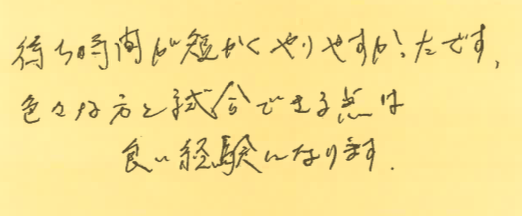 待ち時間が短かくやりやすかったです,
色々な方と試合できる点は
良い経験になります.